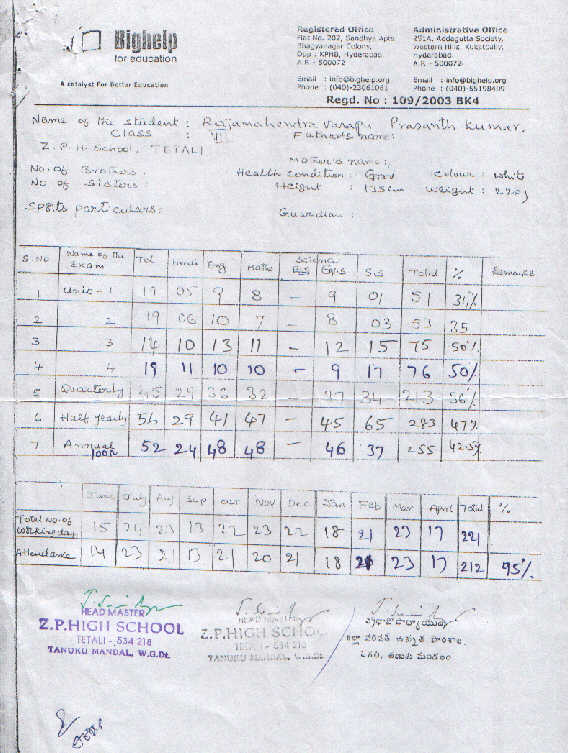 Bighelp
for education
A catalyst For Better Education
Registered Office
Flat No. 202, Sandhya Apts
Bhagyanagar Colony,
Opp : KPHB, Hyderabad.
A.P. - 500072
Email : info@bighelp.org
Phone : (040)-23061061
Administrative Office
291A, Addagutta Society,
Western Hills, Kukatpally,
Hyderabad.
A.P. - 500072
Email : info@bighelp.org
Regd. No : 109/2003 BK4
Name of the student : Rajamahendravarapu Prasanth Kumar.
Class : VI Father's name:
Z.P. High School, TETALI
Mother's name:
No. of Brothers : Health condition : Good Colour : White
No of Sisters : Height : 135cm Weight :
Sports particulars: Guardian :
S.No Name of the Exam Tel Hindi Eng Maths Science P.S N.S S.S Total % Remarks
1 Unit - 1 19 05 9 8 - 9 01 51 34%
2 2 19 06 10 7 - 8 03 53 35
3 3 14 10 13 11 - 12 15 75 50%
4 4 19 11 10 10 - 9 17 76 50%
5 Quarterly 45 32 - 34 56%
6 Half yearly 56 29 41 47 - 45 65 283 47%
7 Annual 100% 52 24 48 48 - 46 37 255 42.5%
June July Aug Sep Oct Nov Dec Jan Feb Mar April Total %
Total No. of Working days 15 24 23 13 22 23 22 18 21 23 17 221
Attendance 14 23 21 13 21 20 21 18 21 23 17 212 95%
HEAD MASTER
Z.P.HIGH SCHOOL
TETALI - 534 218
TANUKU MANDAL, W.G.Dt.
HEAD MASTER
Z.P.HIGH SCHOOL
TETALI - 534 218
TANUKU MANDAL, W.G.Dt.
ప్రధానోపాధ్యాయుడు
జిల్లా పరిషత్ ఉన్నత పాఠశాల,
తేతలి, తణుకు మండలం